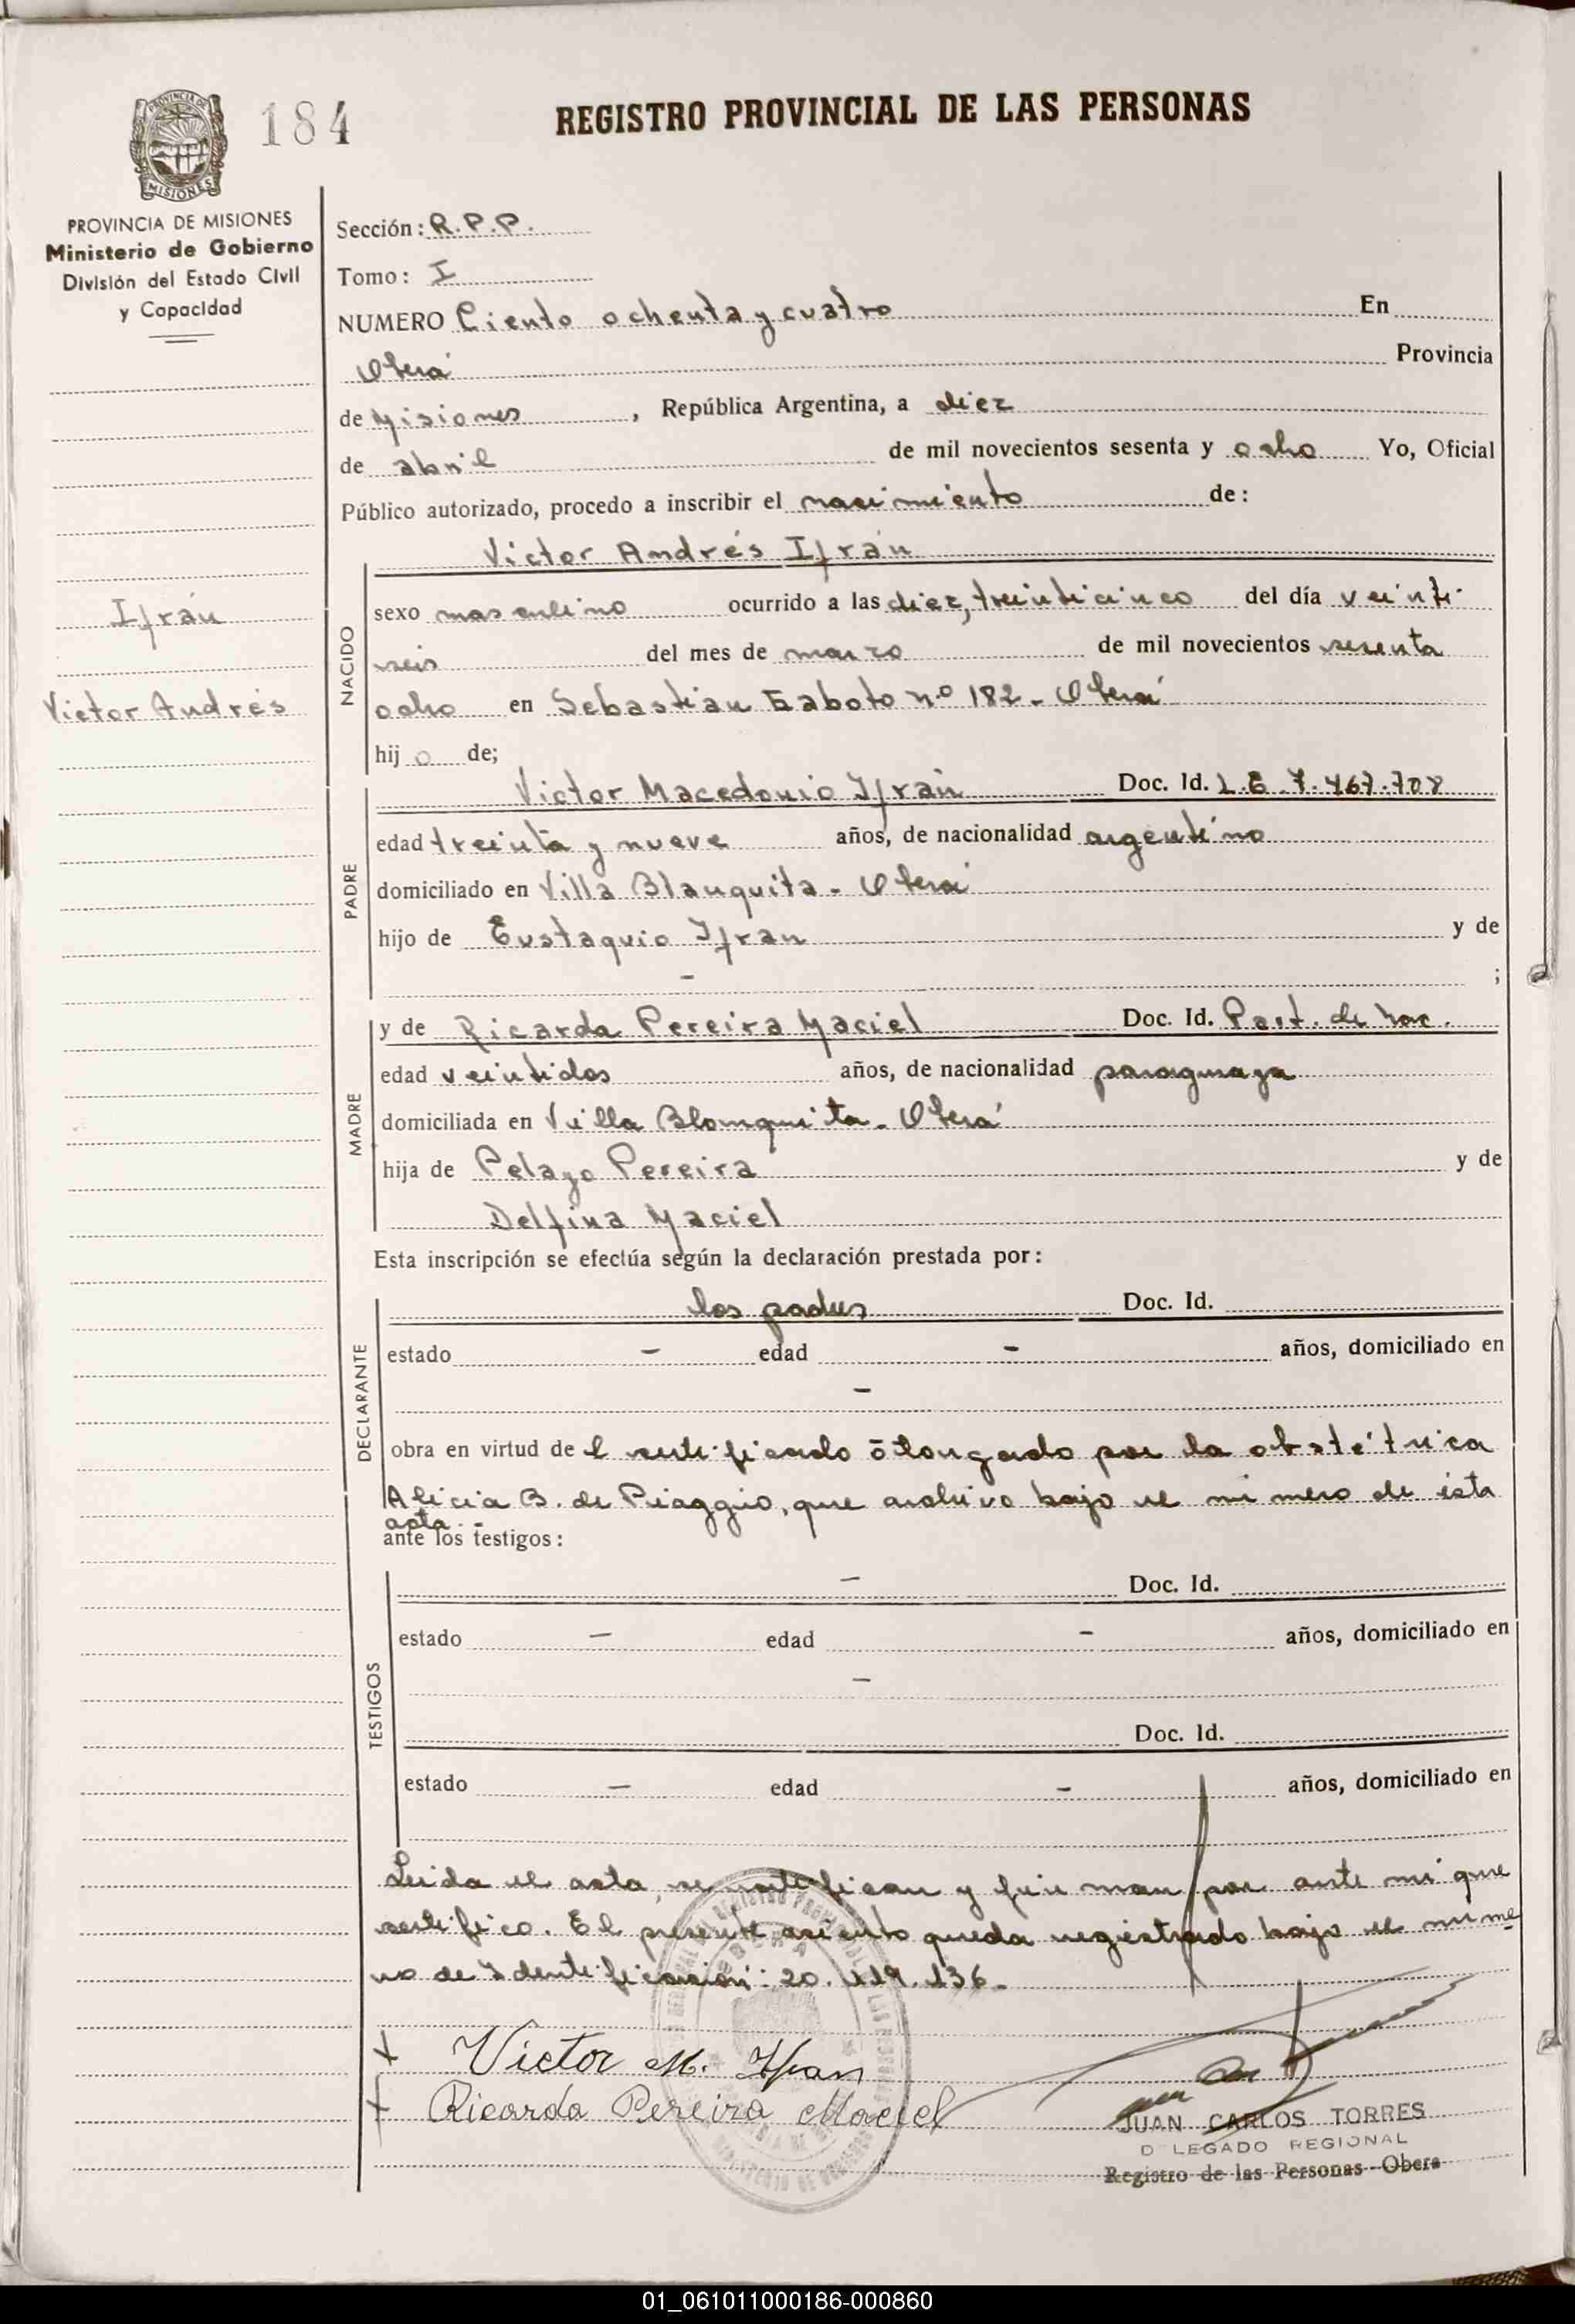 184
REGISTRO PROVINCIAL DE LAS PERSONAS
PROVINCIA DE MISIONES
Ministerio de Gobierno
División del Estado Civil
y Capacidad
Sección: R.P.P.
Tomo: I
NUMERO Ciento ochenta y cuatro En
Oberá Provincia
de Misiones, República Argentina, a diez
de abril de mil novecientos sesenta y ocho Yo, Oficial
Público autorizado, procedo a inscribir el nacimiento de:
Victor Andrés Ifrán
Ifrán
Victor Andrés
NACIDO
sexo masculino ocurrido a las diez, treinticinco del día veinti-
seis del mes de marzo de mil novecientos sesenta
ocho en Sebastián Gaboto nº 182 - Oberá
hijo de;
PADRE
Victor Macedonio Ifrán Doc. Id. L.E. 7.467.708
edad treinta y nueve años, de nacionalidad argentino
domiciliado en Villa Blanquita - Oberá
hijo de Eustaquio Ifran y de
- ;
MADRE
y de Ricarda Pereira Maciel Doc. Id. Part. de nac.
edad veintidos años, de nacionalidad paraguaya
domiciliada en Villa Blanquita - Oberá
hija de Pelayo Pereira y de
Delfina Maciel
Esta inscripción se efectúa según la declaración prestada por:
DECLARANTE
los padres Doc. Id.
estado - edad - años, domiciliado en
-
obra en virtud de l certificado otorgado por la obstétrica
Alicia B. de Piaggio, que archivo bajo el número de ésta
acta.-
ante los testigos:
TESTIGOS
- Doc. Id.
estado - edad - años, domiciliado en
-
Doc. Id.
estado - edad - años, domiciliado en
Leida el acta, se ratifican y firman por ante mí que
certifico. El presente asiento queda registrado bajo el núme
ro de Identificación: 20.119.136.-
Victor M. Ifran
Ricarda Pereira Maciel
JUAN CARLOS TORRES
D LEGADO REGIONAL
Registro de las Personas - Obera
01_061011000186-000860